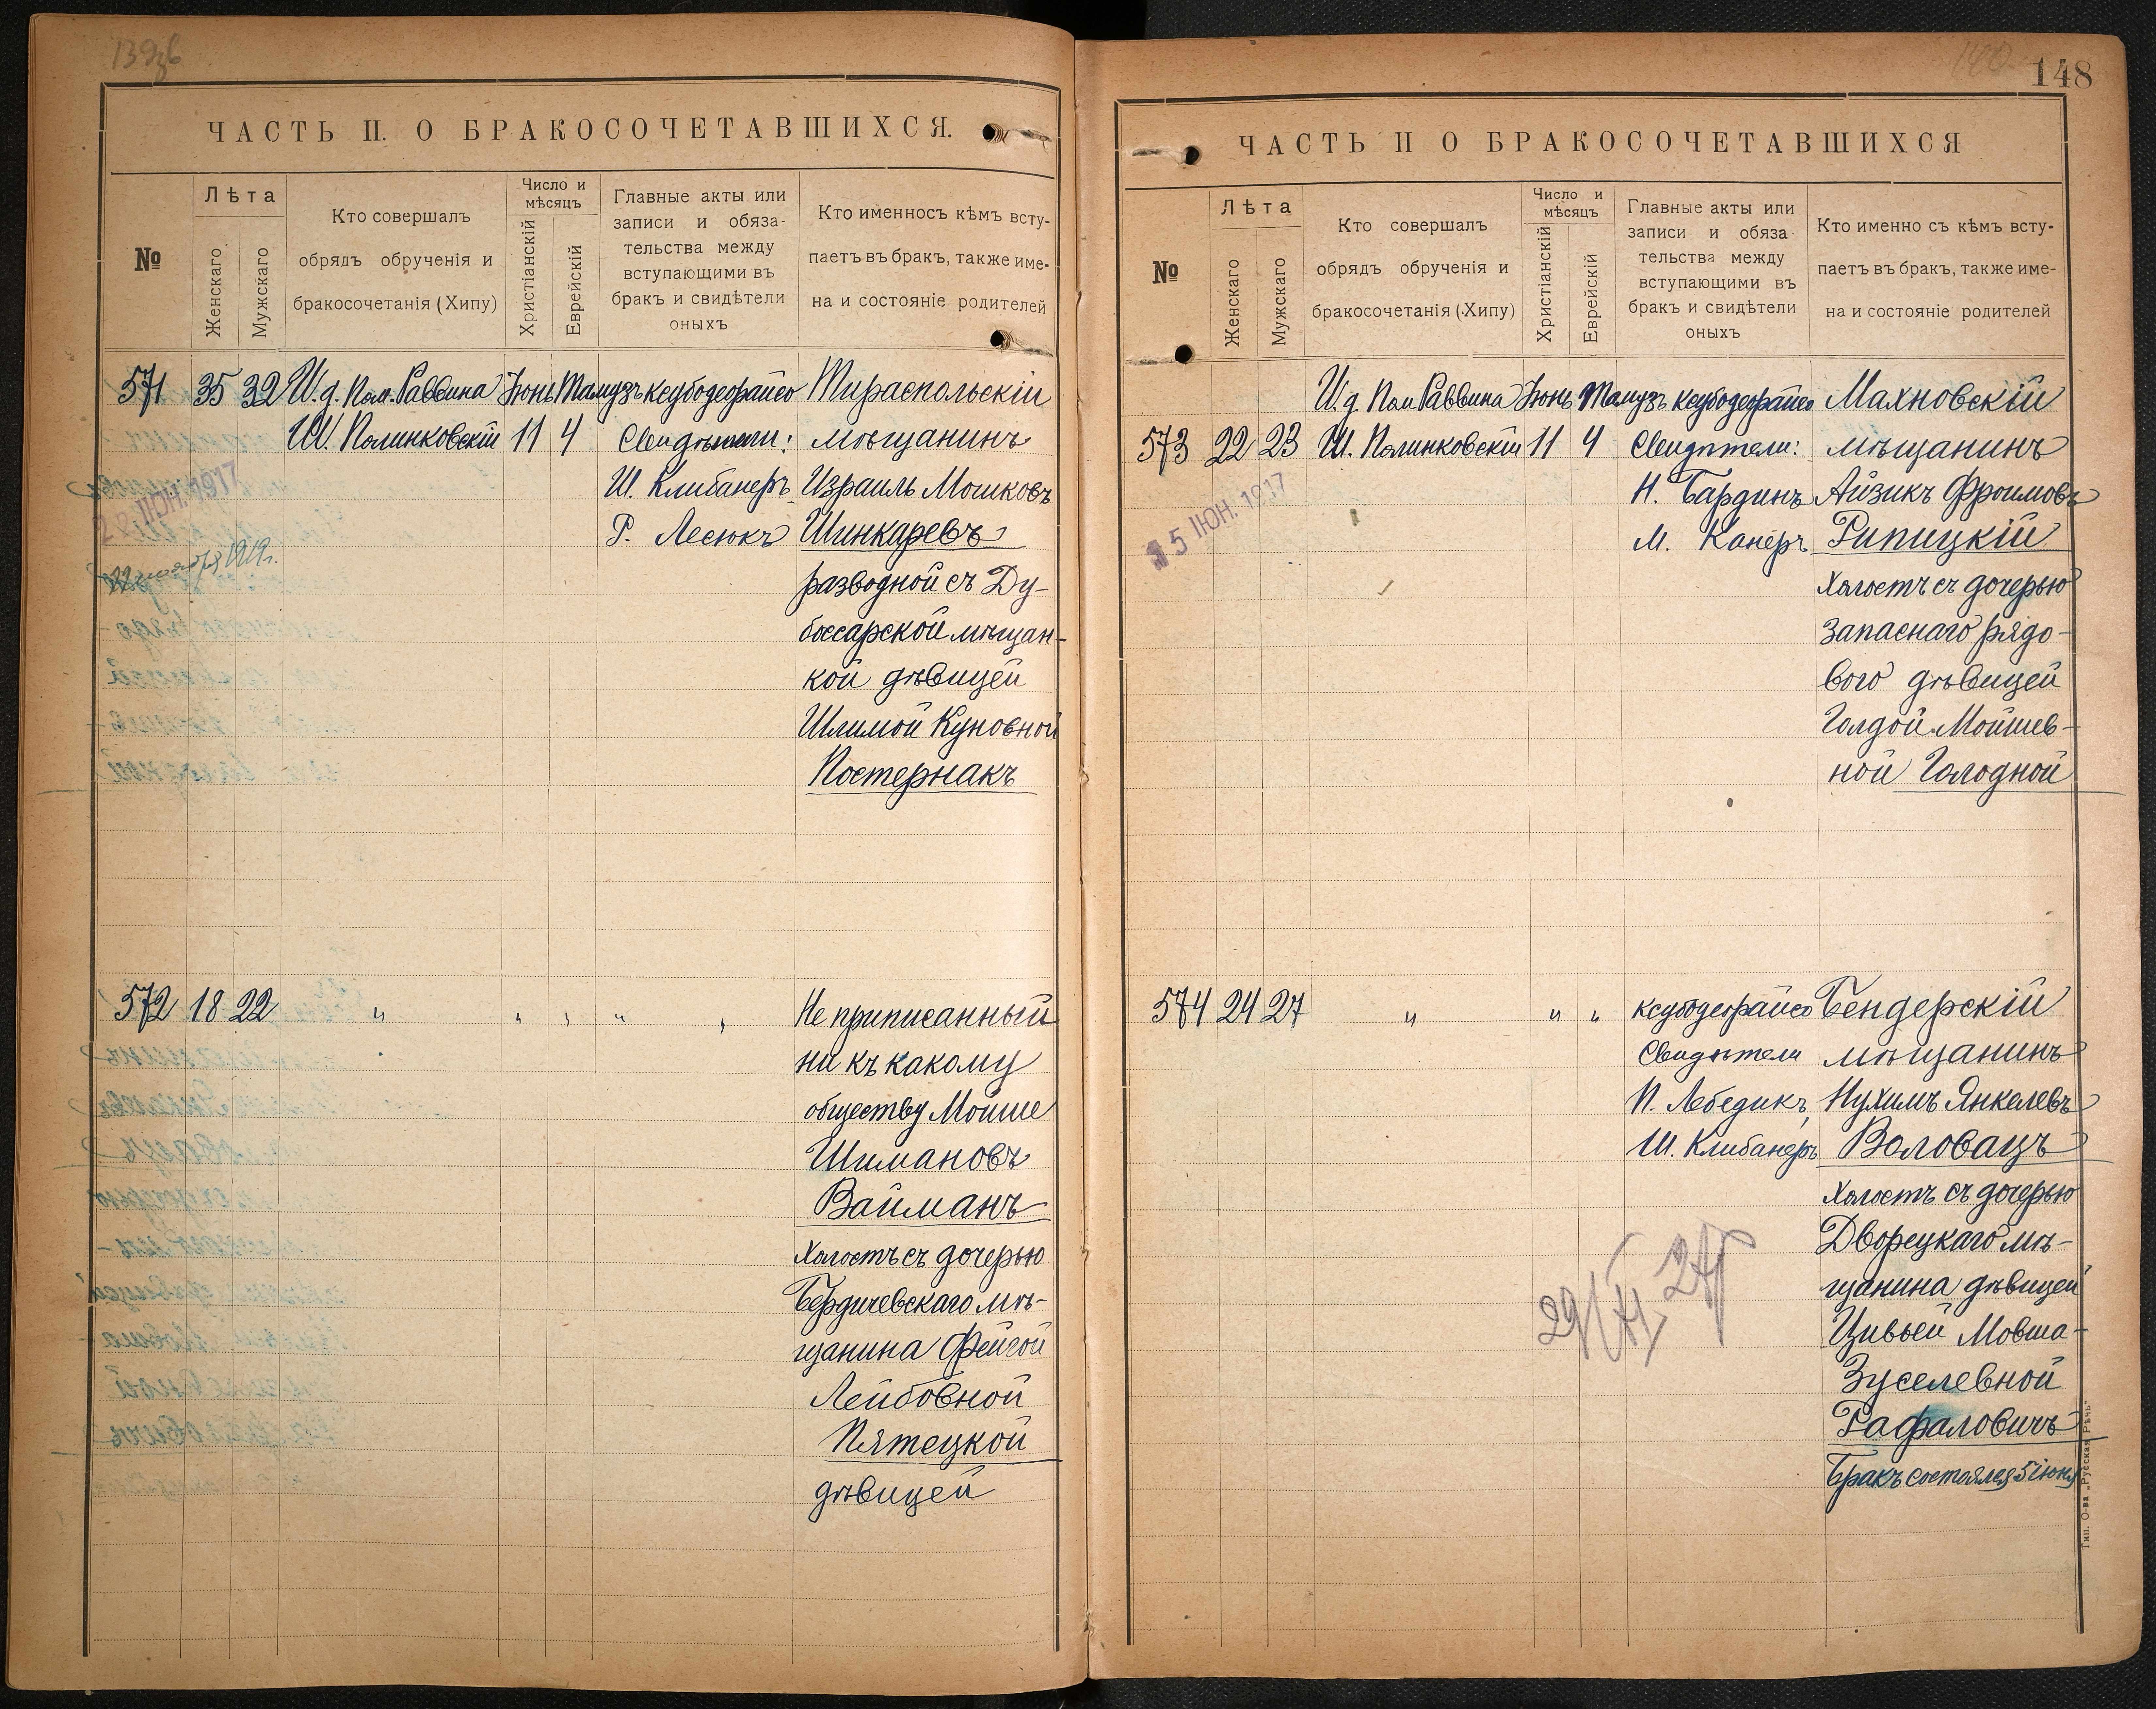 148
ЧАСТЬ II. О БРАКОСОЧЕТАВШИХСЯ.
№
Лѣта
Женскаго
Мужскаго
Кто совершалъ
обрядъ обрученія и
бракосочетанія (Хипу)
Число и
мѣсяцъ
Христіанскій
Еврейскій
Главные акты или
записи и обяза-
тельства между
вступающими въ
бракъ и свидѣтели
оныхъ
Кто именносъ кѣмъ всту-
паетъ въ бракъ, также име-
на и состояніе родителей
571 35 32 И.д. Пом. Раввина Іюнь Тамузъ ксубодеорайсо Тираспольскій
Ш. Полинковскій 11 4 Свидѣтели: мѣщанинъ
Ш. Клибанеръ Израиль Мошковъ
Р. Лесюкъ Шинкаревъ
28 ІЮН. 1917
разводной съ Ду-
боссарской мѣщан-
кой дѣвицей
Шлимой Куновной
Постернакъ
572 18 22 " " " " " Не приписанный
ни къ какому
обществу Мойше
Шимановъ
Вайманъ
холостъ съ дочерью
Бердичевскаго мѣ-
щанина Фейгой
Лейбовной
Пятецкой
дѣвицей
ЧАСТЬ II О БРАКОСОЧЕТАВШИХСЯ
№
Лѣта
Женскаго
Мужскаго
Кто совершалъ
обрядъ обрученія и
бракосочетанія (Хипу)
Число и
мѣсяцъ
Христіанскій
Еврейскій
Главные акты или
записи и обяза
тельства между
вступающими въ
бракъ и свидѣтели
оныхъ
Кто именно съ кѣмъ всту-
паетъ въ бракъ, также име-
на и состояніе родителей
И.д. Пом. Раввина Іюнь Тамузъ ксубодеорайсо Махновскій
573 22 23 Ш. Полинковскій 11 4 Свидѣтели: мѣщанинъ
Н. Бардинъ Айзикъ Фроимовъ
М. Канеръ Рипицкій
15 ІЮН. 1917
холостъ съ дочерью
запаснаго рядо-
вого дѣвицей
Голдой Мойшев-
ной Голодной
574 24 27 " " " ксубодеорайсо Бендерскій
Свидѣтели мѣщанинъ
П. Лебедикъ Нухимъ Янкелевъ
Ш. Клибанеръ Воловацъ
холостъ съ дочерью
Дворецкаго мѣ-
щанина дѣвицей
Цивьей Мовша-
Зуселевной
Рафаловичъ
Бракъ состоялся 5 іюня
Тип. О-ва „Русская Рѣчь"